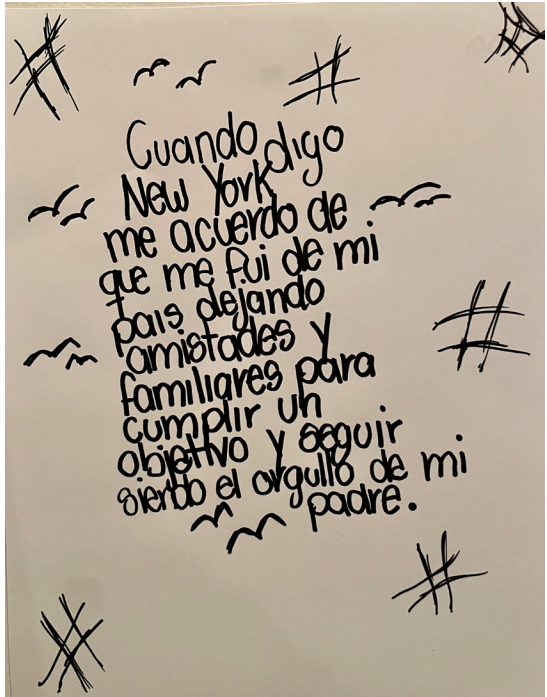 Cuando digo
New York
me acuerdo de
que me fui de mi
pais dejando
amistades y
familiares para
cumplir un
objetivo y seguir
siendo el orgullo de mi
padre.